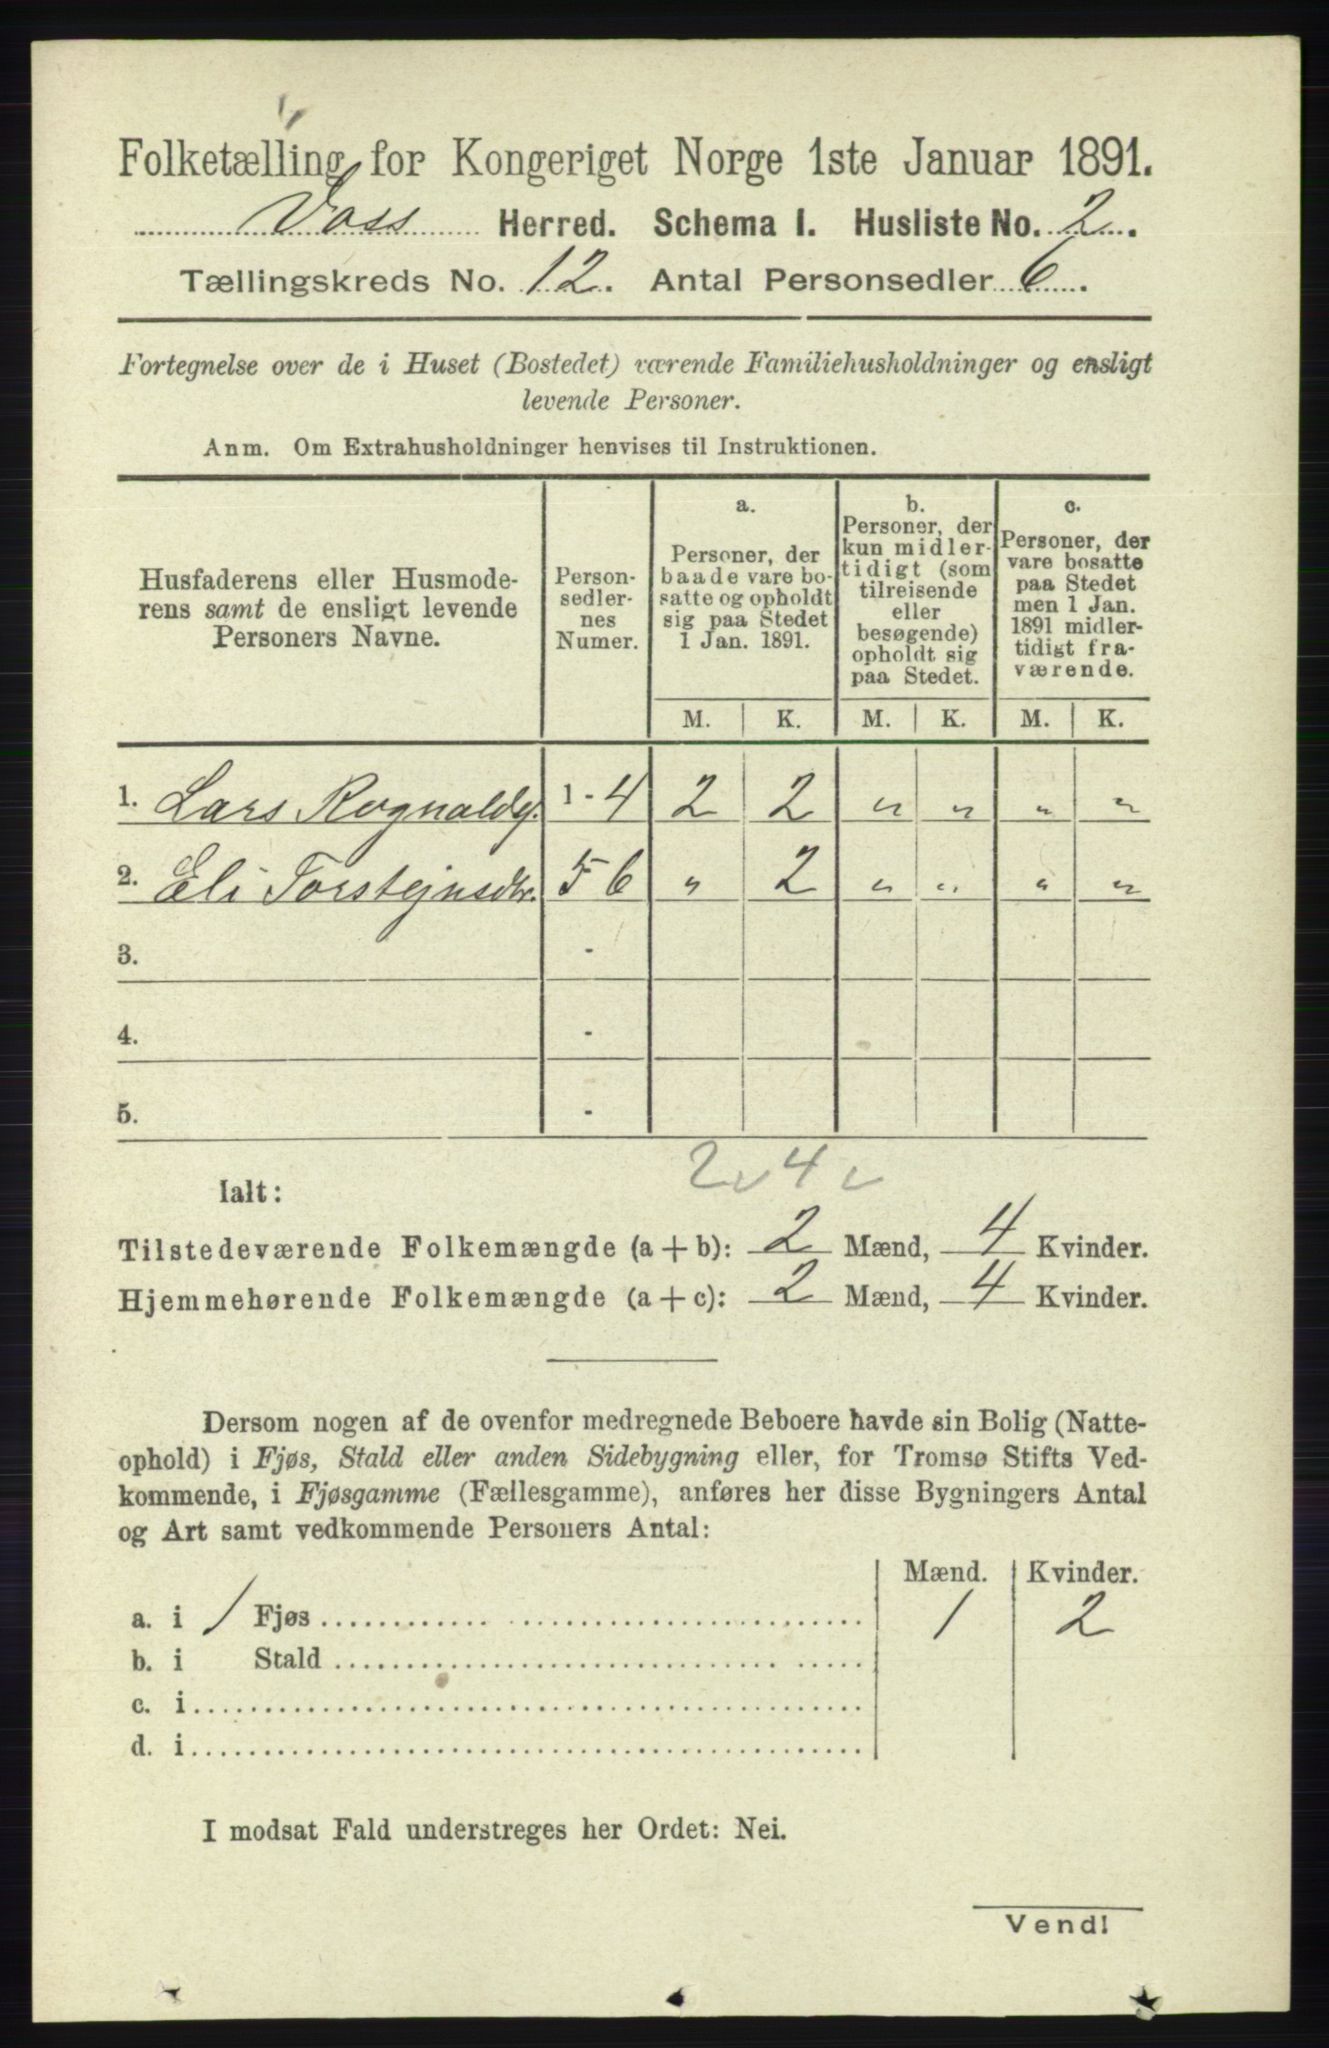 Folketælling for Kongeriget Norge 1ste Januar 1891.
Voss Herred. Schema I. Husliste No. 2.
Tællingskreds No. 12. Antal Personsedler 6.
Fortegnelse over de i Huset (Bostedet) værende Familiehusholdninger og ensligt
levende Personer.
Anm. Om Extrahusholdninger henvises til Instruktionen.
Husfaderens eller Husmode-
rens samt de ensligt levende
Personers Navne.
Person-
sedler-
nes
Numer.
a.
Personer, der
baade vare bo-
satte og opholdt
sig paa Stedet
1 Jan. 1891.
b.
Personer, der
kun midler-
tidigt (som
tilreisende
eller
besøgende)
opholdt sig
paa Stedet.
c.
Personer, der
vare bosatte
paa Stedet
men 1 Jan.
1891 midler-
tidigt fra-
værende.
M. K. M. K. M. K.
1. Lars Rognaldsg. 1-4 2 2 " " " "
2. Eli Torstejnsdtr. 5 6 " 2 " " " "
3. -
4. -
5. -
2 4
Ialt:
Tilstedeværende Folkemængde (a + b): 2 Mænd, 4 Kvinder.
Hjemmehørende Folkemængde (a + c): 2 Mænd, 4 Kvinder.
Dersom nogen af de ovenfor medregnede Beboere havde sin Bolig (Natte-
ophold) i Fjøs, Stald eller anden Sidebygning eller, for Tromsø Stifts Ved-
kommende, i Fjøsgamme (Fællesgamme), anføres her disse Bygningers Antal
og Art samt vedkommende Personers Antal:
Mænd. Kvinder.
a. i 1 Fjøs 1 2
b. i Stald
c. i
d. i
I modsat Fald understreges her Ordet: Nei.
Vend!